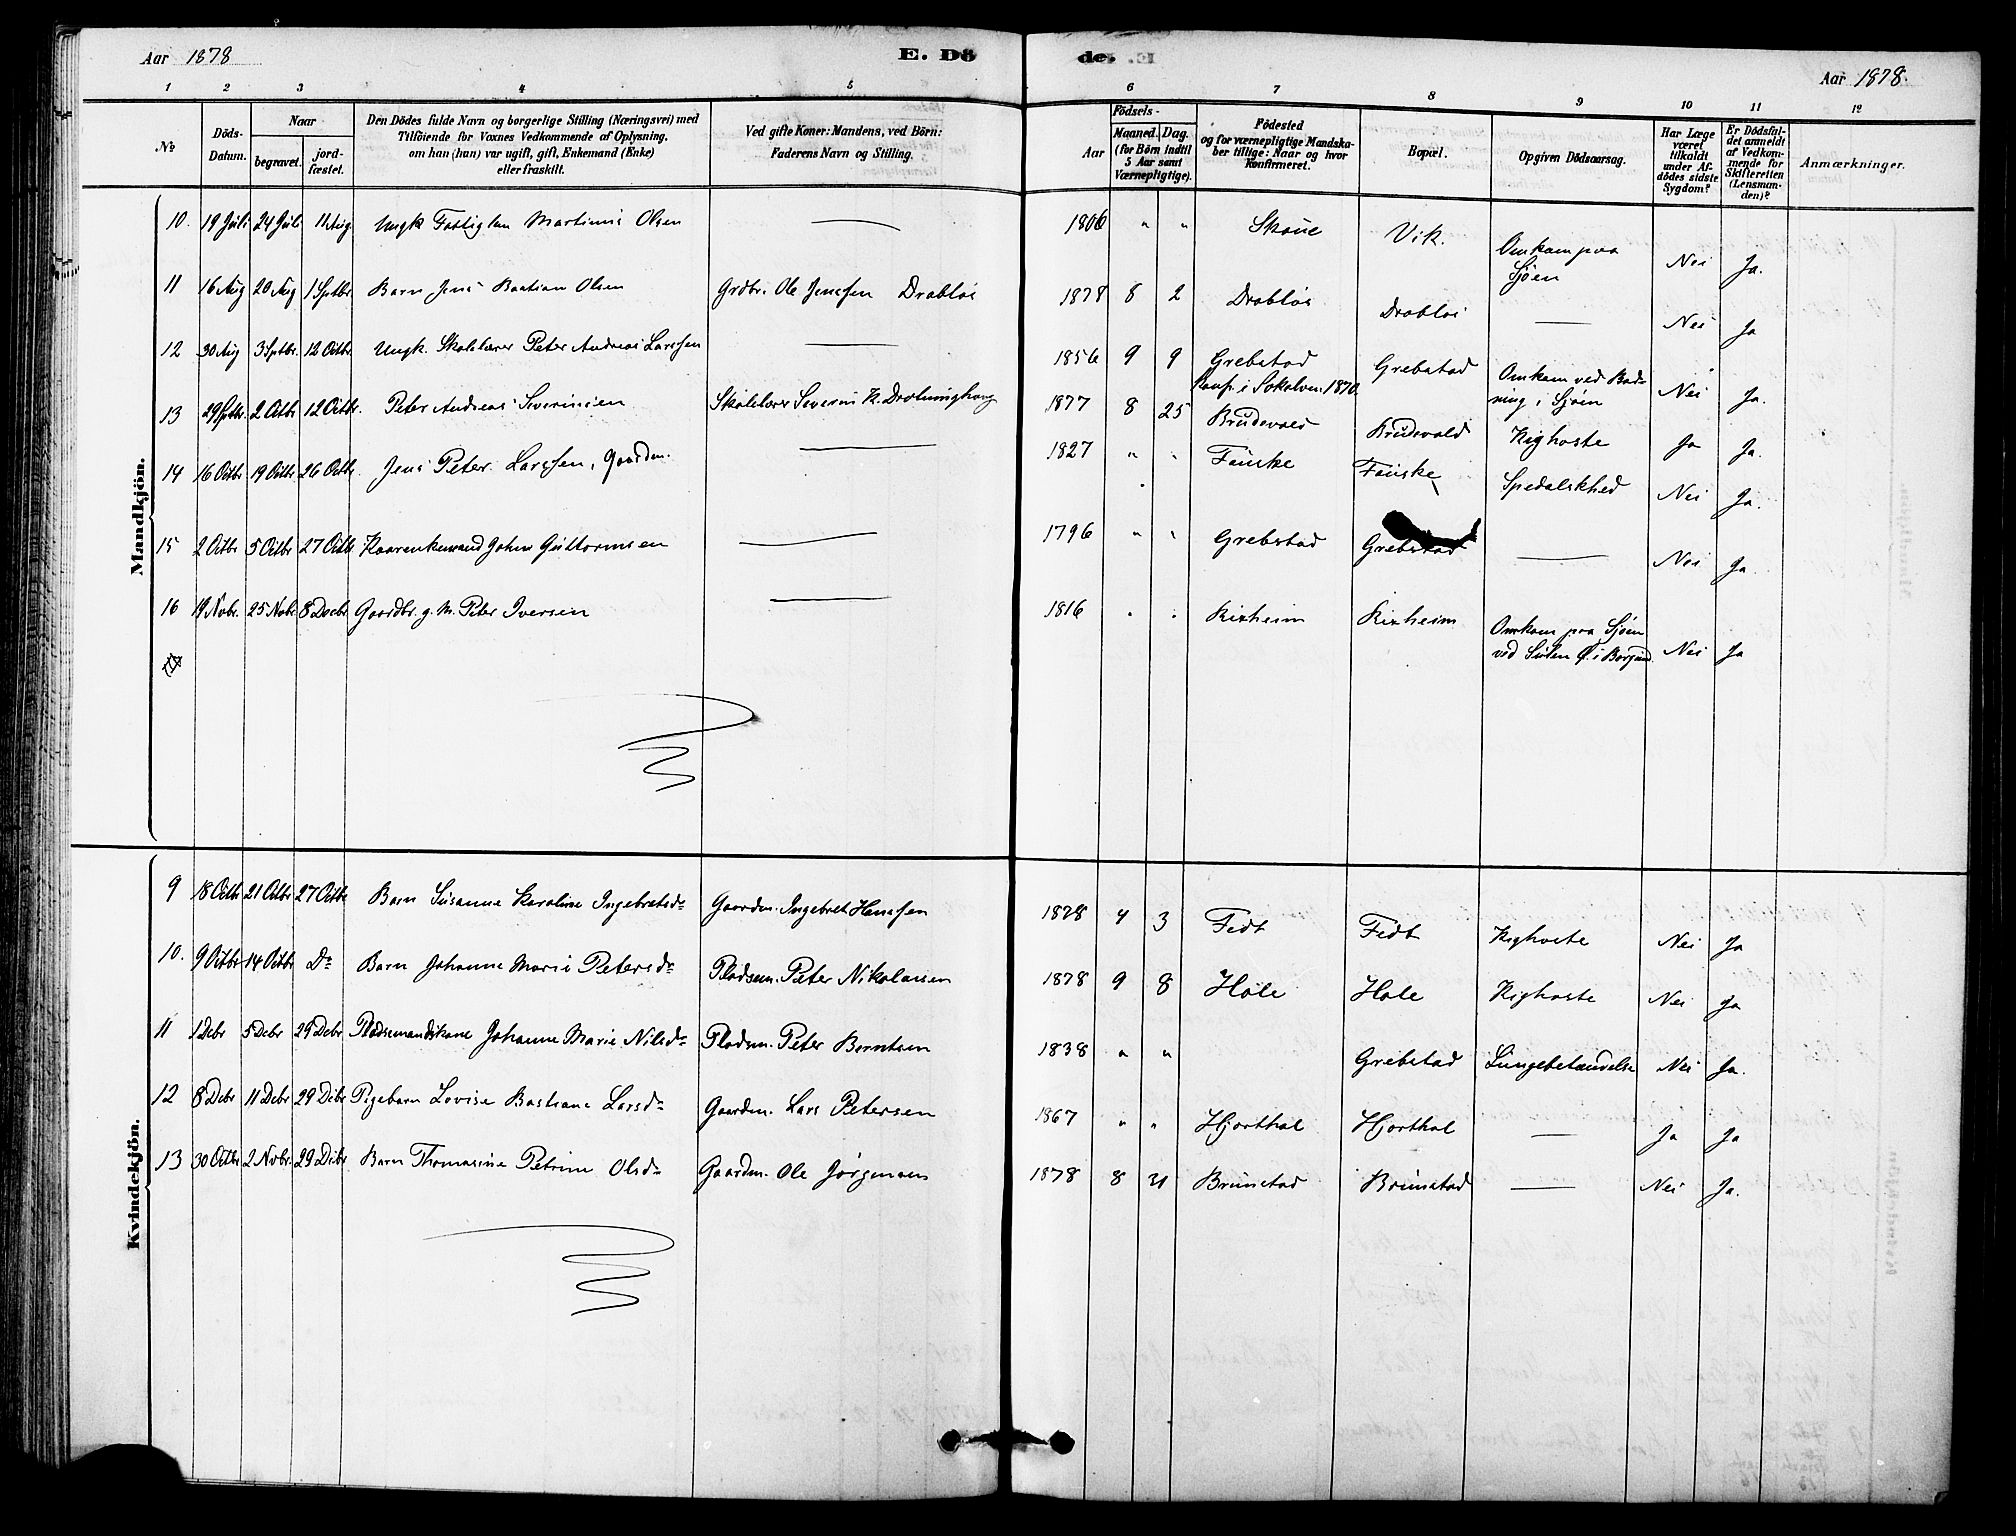 Aar 1878
E. Dö
de.
Aar 1878.
1 2 3 4 5 6 7 8 9 10 11 12
No
Döds-Datum.
Naar
begravet.
jord-fæstet.
Den Dödes fulde Navn og borgerlige Stilling (Næringsvei) med
Tilföiende for Voxnes Vedkommende af Oplysning,
om han (hun) var ugift, gift, Enkemand (Enke)
eller fraskilt.
Ved gifte Koner: Mandens, ved Börn:
Faderens Navn og Stilling.
Födsels-
Aar
Maaned. Dag.
(for Börn indtil
5 Aar samt
Værnepligtige).
Födested
og for værnepligtige Mandska-
ber tillige: Naar og hvor
Konfirmeret.
Bopæl.
Opgiven Dödsaarsag.
Har Læge
været
tilkaldt
under Af-
dödes sidste
Sygdom?
Er Dödsfal-
det anmeldt
af Vedkom-
mende for
Skifteretten
(Lensman-
den)?
Anmærkninger.
Mandkjön.
10. 19 Juli 24 Juli 11 Aug Ungk Martinus Olsen — 1806 " " Skoue Vik. Omkom paa Sjøen Nei Ja.
11 16 Aug 20 Aug 1 Sptbr. Barn Jens Bastian Olsen Grdbr. Ole Jenssen Drabløs 1878 8 2 Drabløs Drabløs — Nei Ja
12 30 Aug 3 Sptbr. 12 Octbr. Ungk. Skolelærer Peter Andreas Larssen — 1856 9 9 Grebstad Konf. i Sokelven 1870. Grebstad Omkom ved Bad-ning i Sjøen Nei Ja.
13 29 Sptbr. 2 Octbr 12 Octbr. Peter Andreas Severinsen Skolelærer Severin K. Drotninghaug 1877 8 25 Brudevold Brudevold Kighoste Ja Ja.
14 16 Octbr 19 Octbr. 26 Octbr. Jens Peter Larssen, Gaardm. — 1827 " " Fauske Fauske Spedalskhed Nei Ja.
15 2 Octbr 5 Octbr 27 Octbr Kaarenkemand John Guttormsen — 1796 " " Grebstad Grebstad — Nei Ja.
16 19 Novbr. 25 Novbr 8 Decbr Gaardbr. g. M. Peter Iversen — 1816 " " Rixheim Rixheim Omkom paa Sjøen ved Sulen i Borgund. Nei Ja
Kvindekjön.
9 18 Octbr 21 Octbr 27 Octbr Barn Susanne Karoline Ingebretsdr Gaardm. Ingebret Hanssen 1878 4 3 Fedt Fedt Kighoste Nei Ja
10. 9 Octbr 14 Octbr Do Barn Johanne Marie Petersdr Pladsem. Peter Nikolaisen 1878 9 8 Hole Hole Kighoste Nei Ja
11 1 Debr 5 Debr 29 Debr Pladsemandskone Johanne Marie Nilsdr Pladsm. Peter Berntsen 1838 " " Grebstad Lungebetændelse Nei Ja.
12 8 Debr 11 Debr 29 Debr Pigebarn Lovise Bastiane Larsdr Gaardm. Lars Petersen 1867 " " Hjorthol Hjorthol — Ja Ja
13 30 Octbr 2 Novbr. 29 Debr Barn Thomasine Petrine Olsdr Gaardm. Ole Jørgensen 1878 8 31 Brunstad Brunstad — Nei Ja.